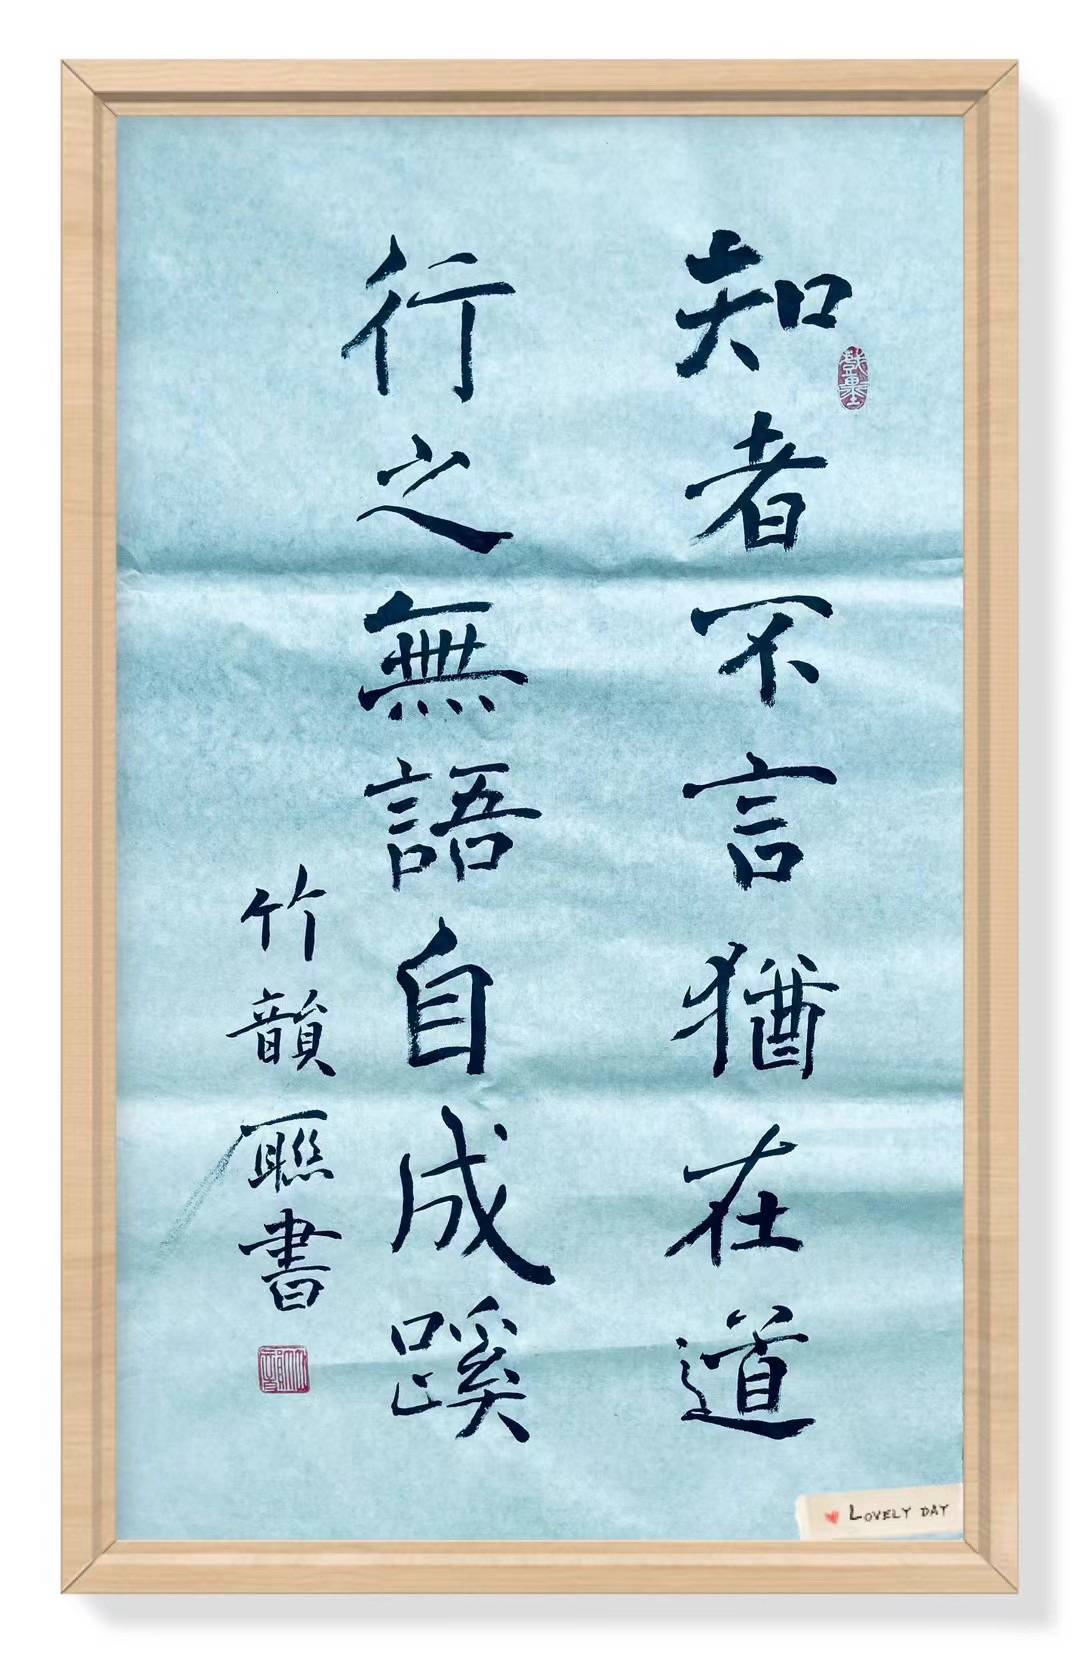 知者不言猶在道
行之無語自成蹊
竹韻聯書
LOVELY DAY